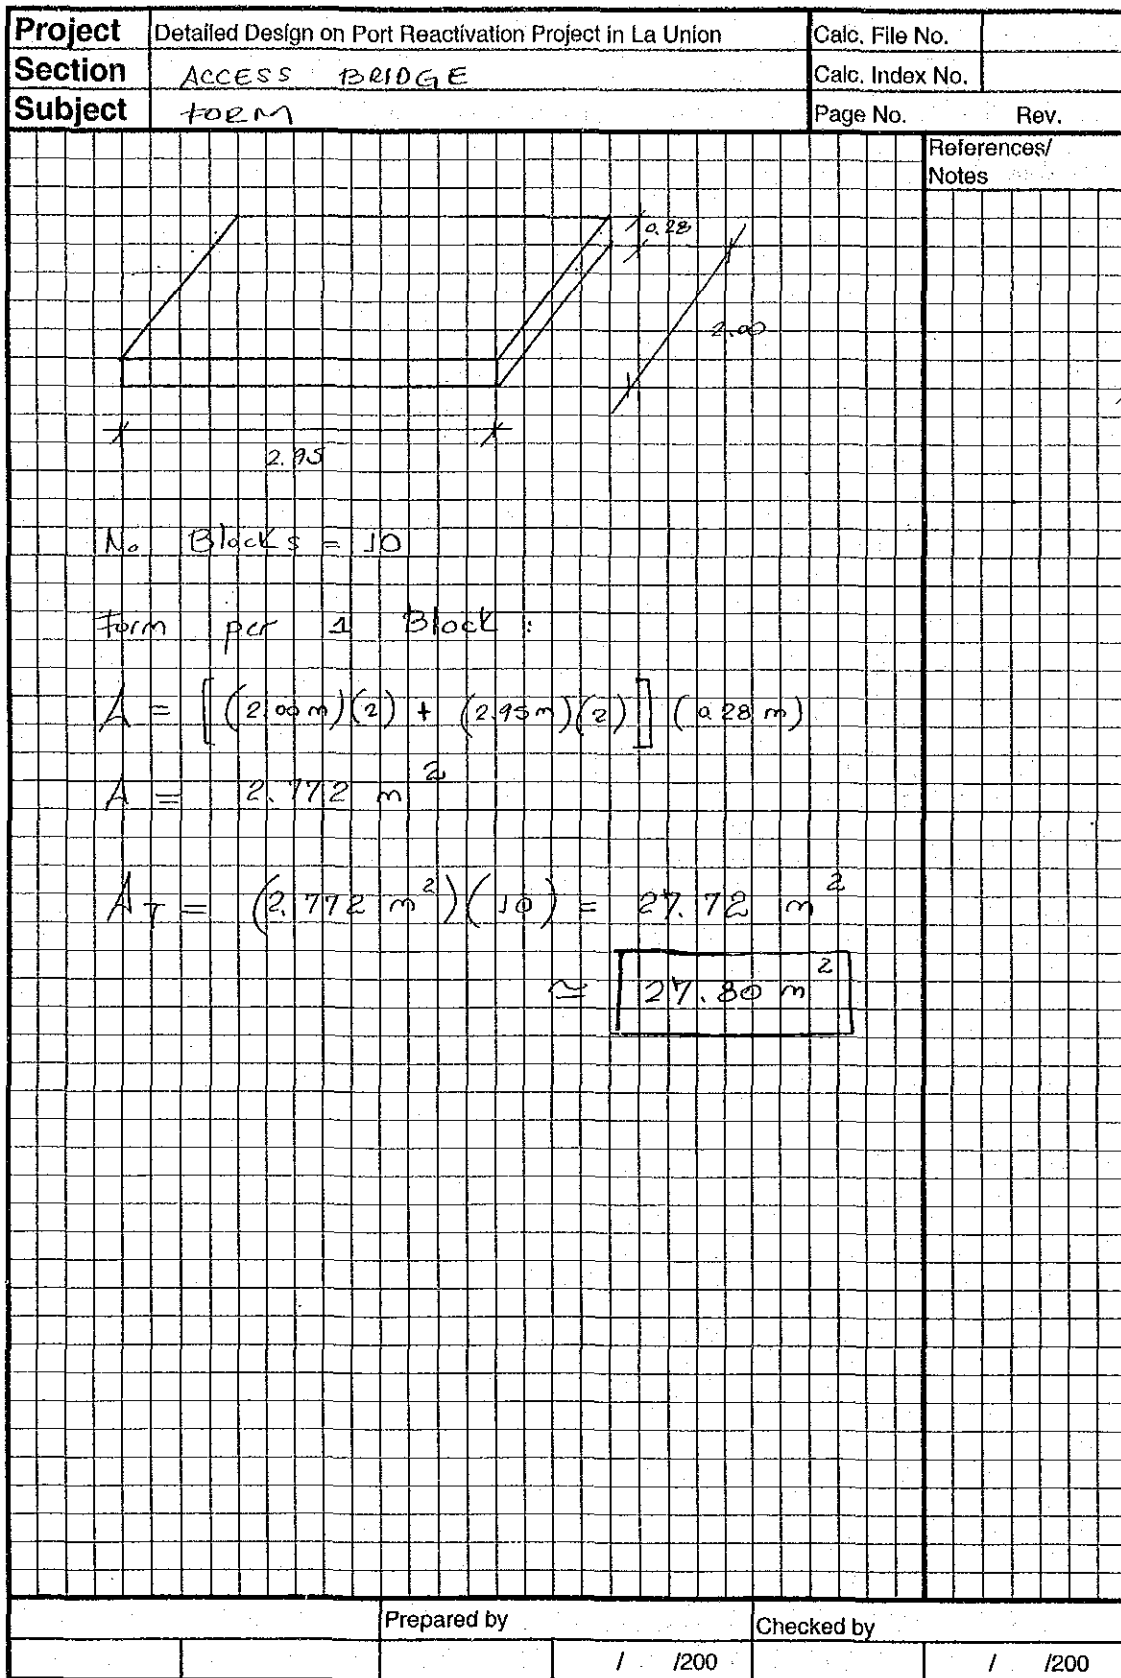 Project Detailed Design on Port Reactivation Project in La Union Calc. File No.
Section ACCESS BRIDGE Calc. Index No.
Subject FORM Page No. Rev.
References/
Notes
0.28
2.00
2.95
No Blocks = 10
Form per 1 Block :
A = [(2.00 m)(2) + (2.95 m)(2)] (0.28 m)
A = 2.772 m²
A_T = (2.772 m²)(10) = 27.72 m²
≃ 27.80 m²
Prepared by Checked by
/ /200 / /200